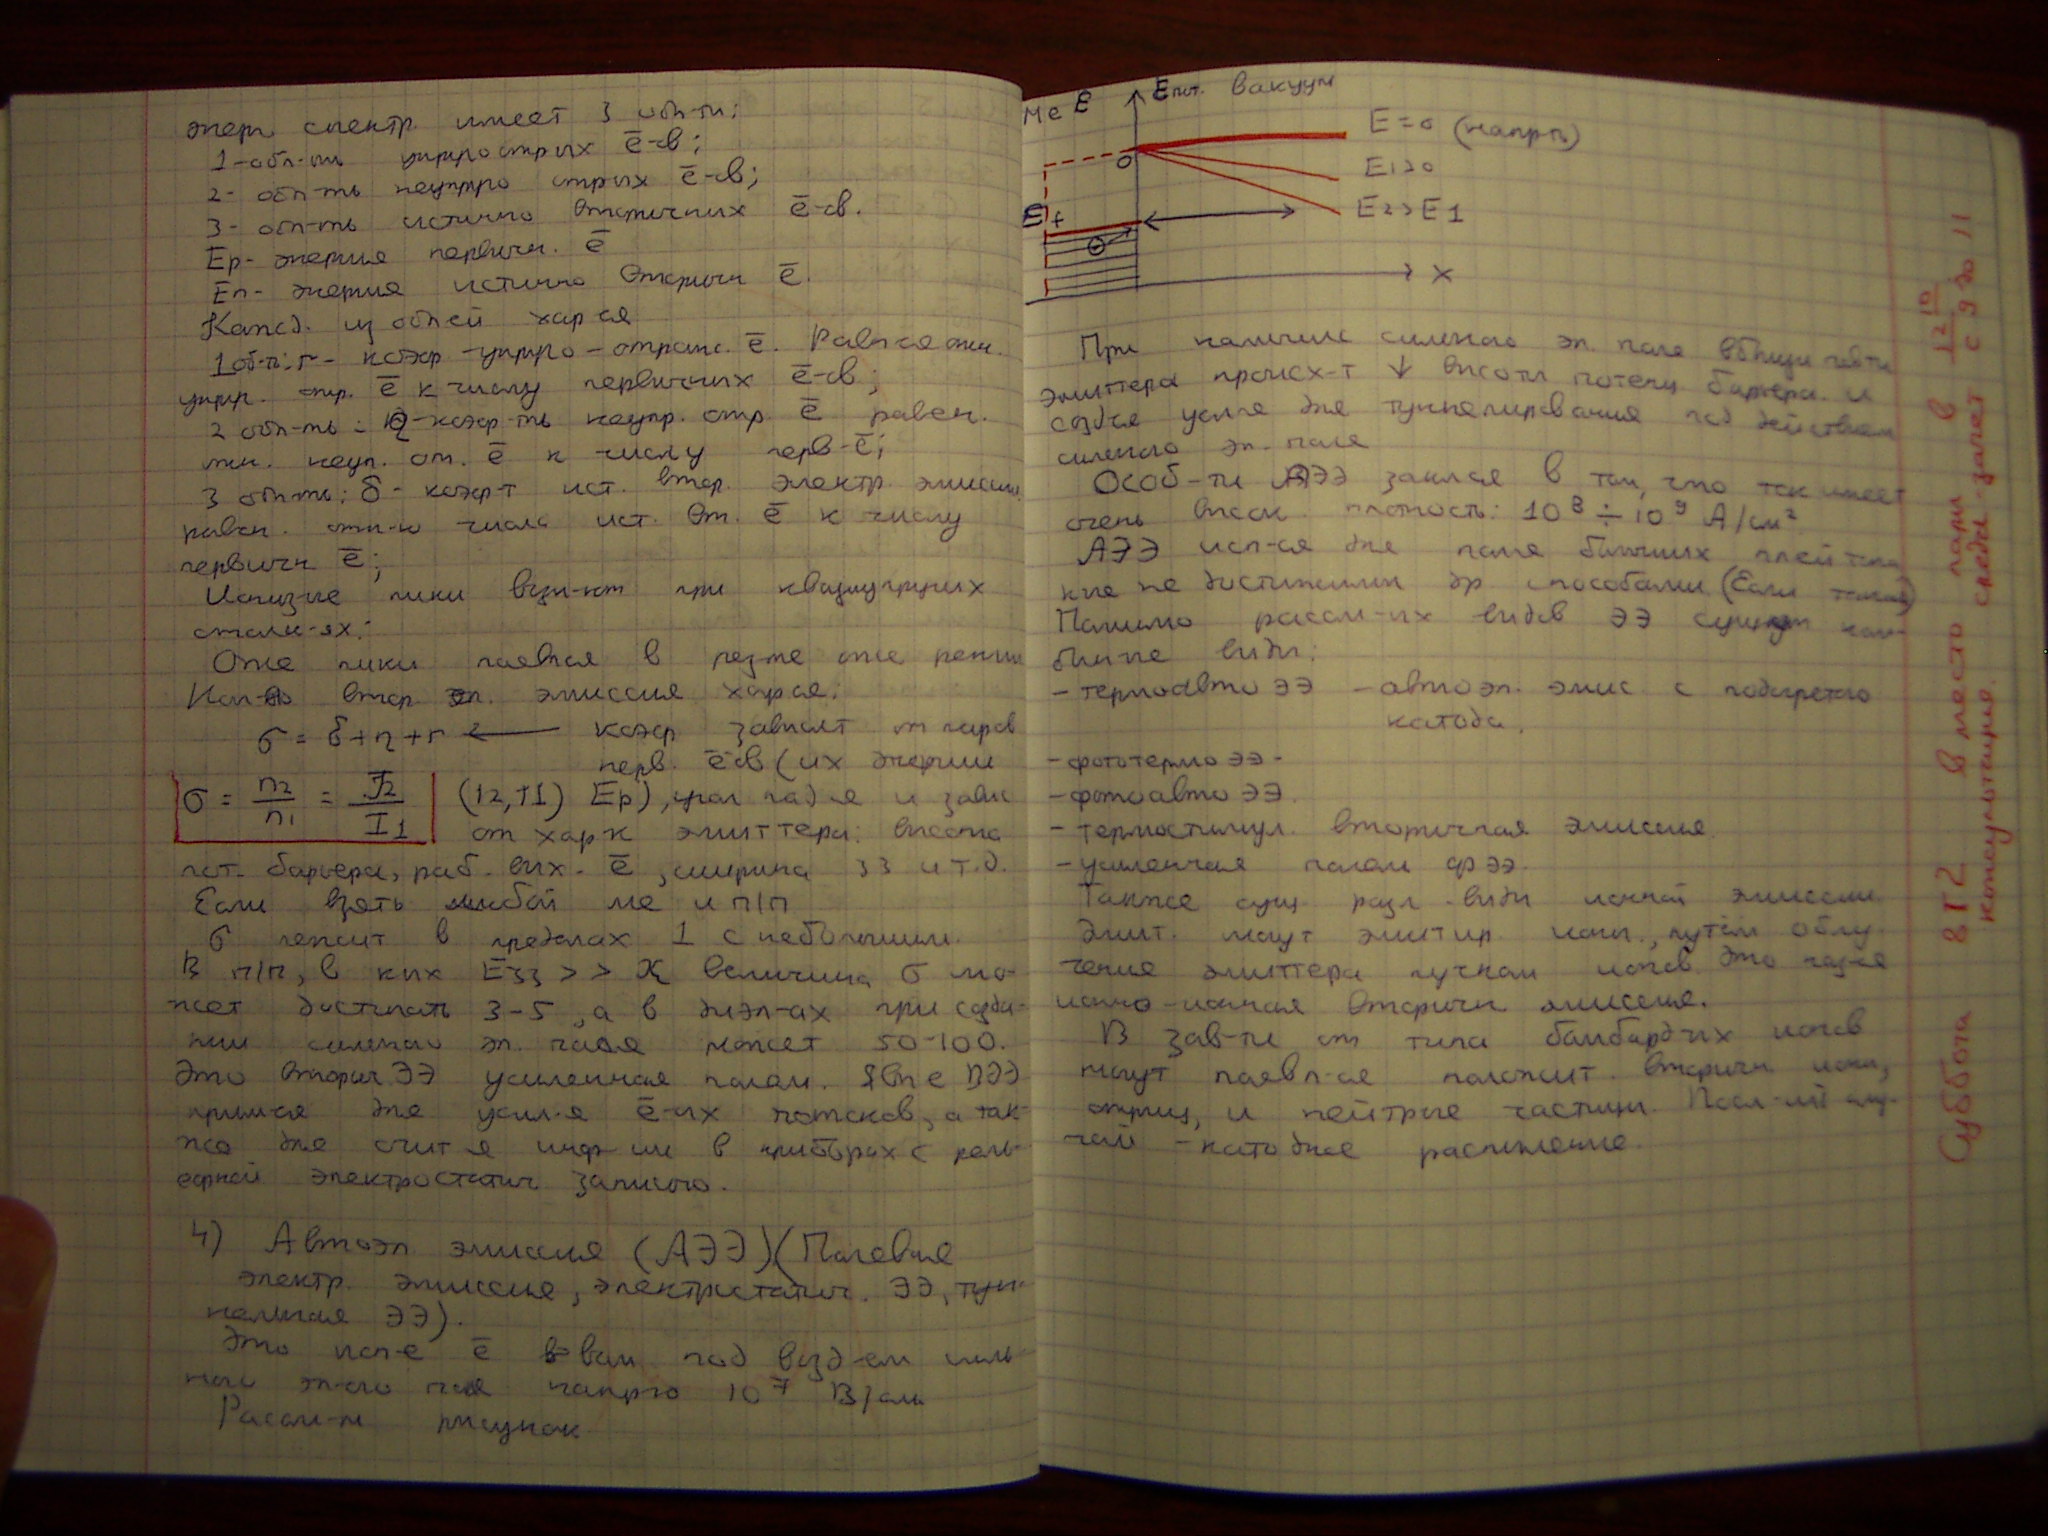 энерг спектр имеет 3 обл-ти:
1-обл-ть упругоотрых ē-в;
2- обл-ть неупруго отрых ē-ов;
3- обл-ть истично вторичных ē-ов.
Ep- энергия первичн. ē
Eп- энергия истично вторичн ē.
Кажд. из облей хар ся
1 об-ть: r - коэф -упруго-отраж. ē. Равен отн.
упруг. отр. ē к числу первичных ē-ов;
2 обл-ть: η-коэф-ть неупр. отр. ē равен.
отн. неуп. от. ē к числу перв-ē;
3 обл-ть: δ- коэф-т ист. втор. электр. эмиссии
равен. отн-ю числа ист. вт. ē к числу
первичн ē;
пики возн-ют при квазиупругих
Оже пики появлся в рез-те оже
втор эл. эмиссия хар-ся:
σ = δ+η+r ← коэф зависит от парав
перв. ē-ов (их энергии
σ = n2/n1 = I2/I1 (I2, I1) Ep), угол пад я и завис
от хар к эмиттера: высота
пот. барьера, раб. вых. ē, ширина ЗЗ и т.д.
Если взять любой ме и п/п
σ лежит в пределах 1 с небольшим.
В п/п, в ких Eзз >> χ величина σ мо-
жет достигать 3-5, а в диэл-ах при созда-
нии сильного эл. поля может 50-100.
Это вторич ЭЭ усиленная полем. Явл е ВЭЭ
примся для усил-я ē-ых потоков, а так-
же для счит я инф-ии в приборах с рель-
ефной электростатич записью.
4) Автоэл эмиссия (АЭЭ) (Полевая
электр. эмиссия, электростатич. ЭЭ, тун-
нельная ЭЭ).
Это исп-е ē в вак. под возд-ем силь-
ного эл-ого поля напр-ю 10⁷ В/см
Рассм-м рисунок
Me E Eпот. вакуум
E=0 (напр-ть)
0
E1>0
Ef
E2>E1
x
При наличие сильного эл. поля вблизи пов-ти
эмиттера происх-т ↓ высоты потенц барьера и
создся услия для туннелирования под действием
сильного эл. поля
Особ-ти АЭЭ заклся в том, что ток имеет
очень высок. плотность: 10⁸ ÷ 10⁹ А/см²
АЭЭ исп-ся для больших
кие не достижимы др способами (Если
Помимо рассм-ых видов ЭЭ сущ-ют ком-
бин-ые виды:
- термоавто ЭЭ - автоэл. эмис с подогретого
катода.
- фототермо ЭЭ -
- фотоавто ЭЭ.
- термостимул. вторичная эмиссия
- усиленная полем ФЭЭ.
Также сущ разл. виды ионной эмиссии
Эмит. могут эмитир ионы, путём облу
чения эмиттера пучком ионов. Это наз-ся
ионно-ионная вторичн эмиссия.
В зав-ти от типа бомбард-их ионов
могут появл-ся положит. вторичн ионы,
отриц, и нейтрые частицы. Посл-ий слу-
чай - катодное распыление.
Суббота 8Г2 вместо пары в 12¹⁰
консультация. среда-зачет с 9 до 11